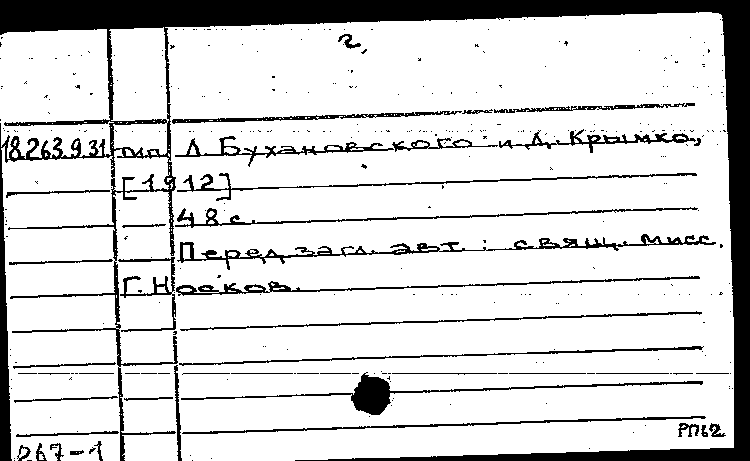 2,
18.263.9.31. тип. Л. Бухановского и Д. Крымко,
[1912]
48 с.
Перед загл. авт.: свящ. мисс.
Г. Носков.
267-1
РП62